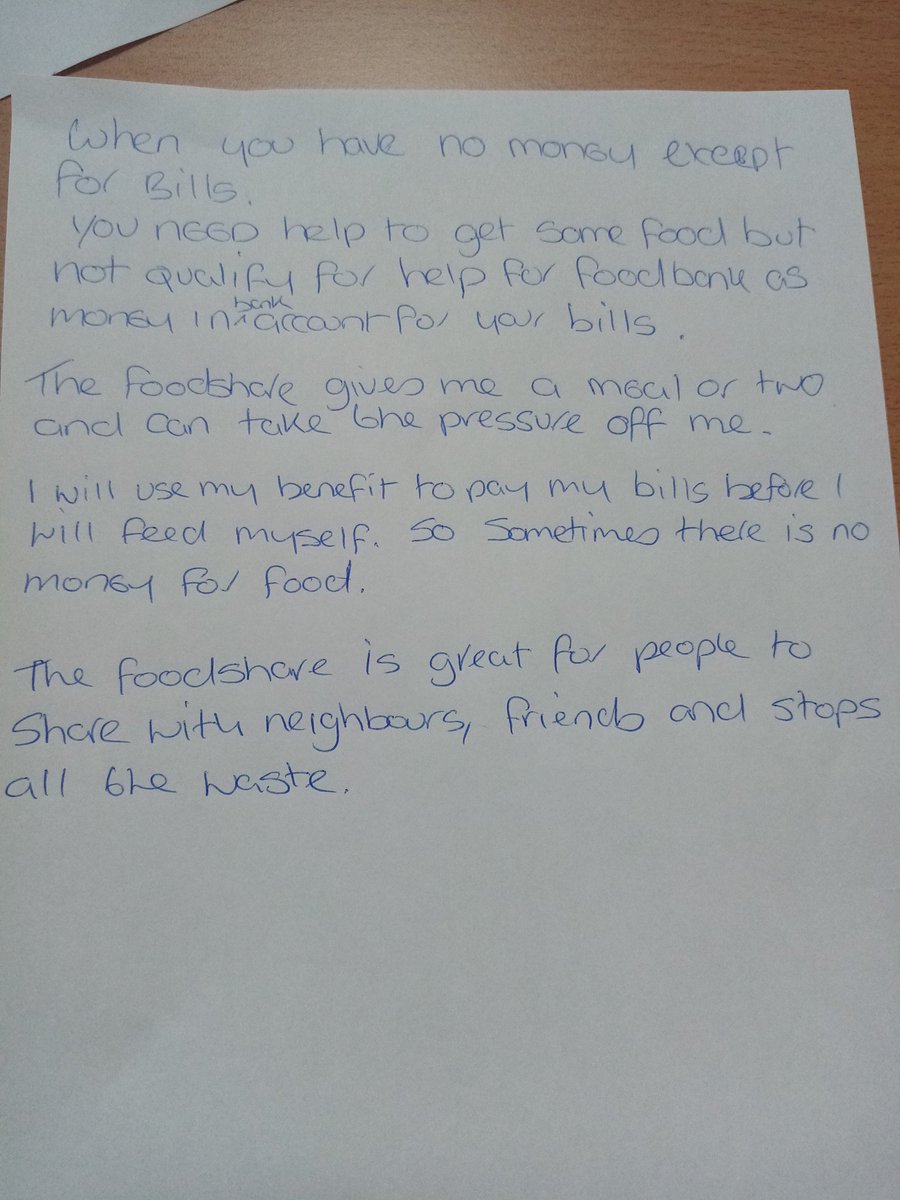 When you have no money except
for Bills.
You NEED help to get some food but
not qualify for help for foodbank as
money in bank account for your bills.
The foodshare gives me a meal or two
and can take the pressure off me.
I will use my benefit to pay my bills before I
will feed myself. So Sometimes there is no
money for food.
The foodshare is great for people to
Share with neighbours, friends and stops
all the waste.